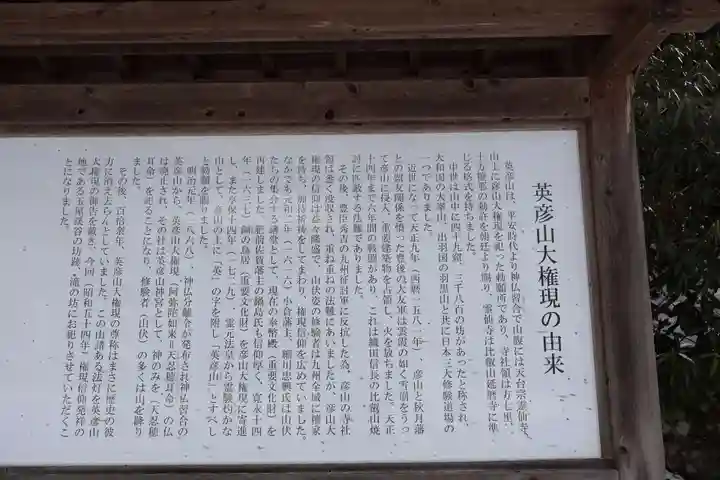 英彦山大権現の由来
英彦山は、平安時代より神仏習合で山腹には天台宗霊仙寺、
山上に彦山大権現を祀った勅願所であり、寺社領は方七里、
十万徳那の勅許を朝廷より賜り、霊仙寺は比叡山延暦寺に準
じる格式を持ちました。
中世は山中に四十九窟、三千八百の坊があったと称され、
大和国の大峯山、出羽国の羽黒山と共に日本三大修験道場の
一つでありました。
近世になって天正九年(西暦一五八一年)、彦山と秋月藩
との盟友関係を憤った豊後の大友軍は雲霞の如く雪崩をうっ
て彦山に侵入、重要建築物を占領し、火を放ちました。天正
十四年まで六年間の戦闘があり、これは織田信長の比叡山焼
討に匹敵する法難でありました。
その後、豊臣秀吉の九州征討軍に反抗した為、彦山の寺社
領は悉く没収され、重ね重ねの法難にあいましたが、彦山大
権現の信仰は益々隆盛で、山伏姿の修験者は九州全域に檀家
を持ち、加持祈祷をしてまわり、権現信仰を広めていました。
なかでも元和二年(一六一六)小倉藩主、細川忠興氏は山伏
たちの集合する講堂として、現在の奉幣殿(重要文化財)を
再建しました。肥前佐賀藩主の鍋島氏も信仰厚く、寛永十四
年(一六三七)銅の鳥居(重要文化財)を彦山大権現に寄進
し、また享保十四年(一七二九)、霊元法皇から霊験灼かな
山として、彦山の上に(英)の字を附し「英彦山」とすべし
と勅額を賜りました。
明治元年(一八六八)、神仏分離令が発布され神仏習合の
英彦山から、英彦山大権現(阿弥陀如来＝天忍穂耳命)の仏
は廃止され、その社は英彦山神宮として、神のみを(天忍穂
耳命)を祀ることになり、修験者(山伏)の多くは山を降り
ました。
その後、百拾余年、英彦山大権現の尊称はまさに歴史の彼
方に消え去らんとしていました。この由諸ある法灯を英彦山
大権現の御告を戴き、今回(昭和五十四年)権現信仰発祥の
地である玉屋渓谷の坊跡・滝の坊にお祀りさせていただくこ
とになりました。